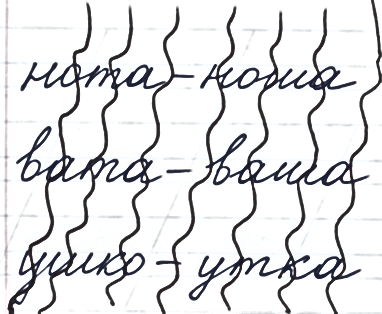 нота – ноша
вата – ваша
ушко – утка